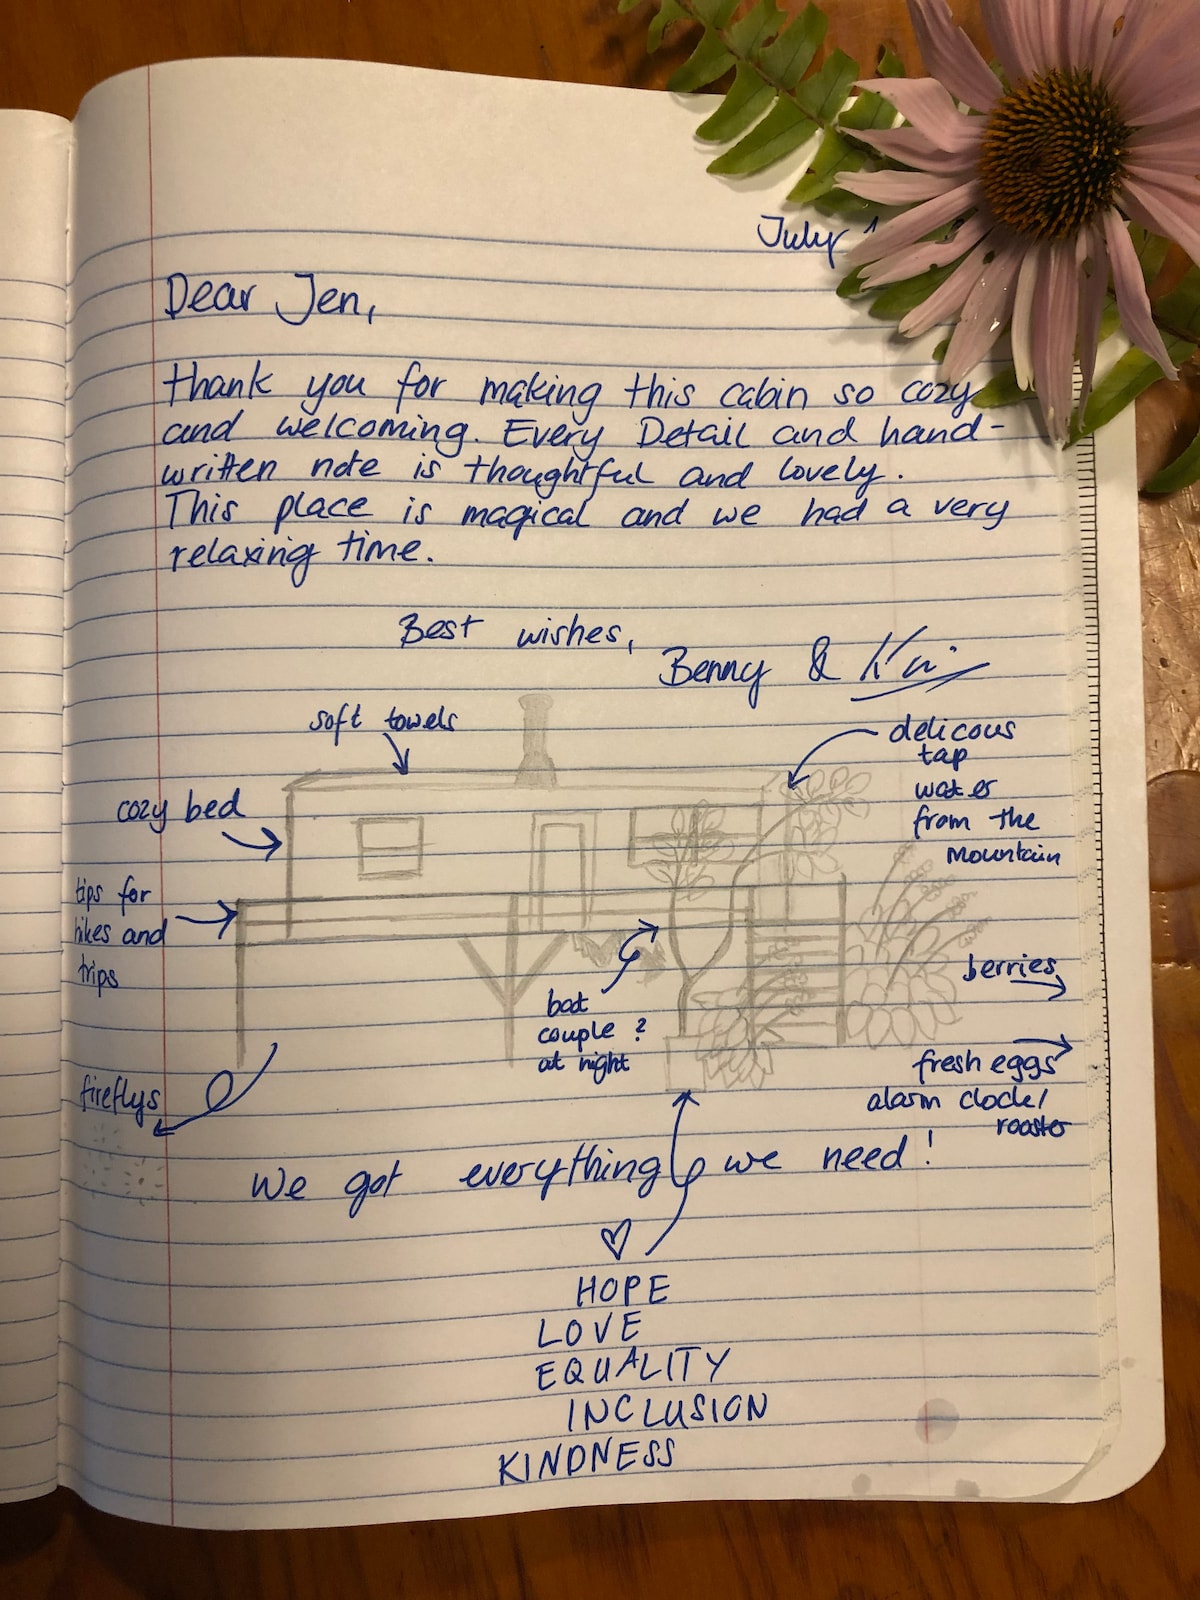 July
Dear Jen,
thank you for making this cabin so cozy
and welcoming. Every Detail and hand-
written note is thoughtful and lovely.
This place is magical and we had a very
relaxing time.
Best wishes,
Benny &
soft towels
delicous
tap
water
from the
mountain
cozy bed
tips for
hikes and
trips
berries
bat
couple ?
at night
fresh eggs
alarm clock/
rooster
fireflys
We got everything we need!
HOPE
LOVE
EQUALITY
INCLUSION
KINDNESS